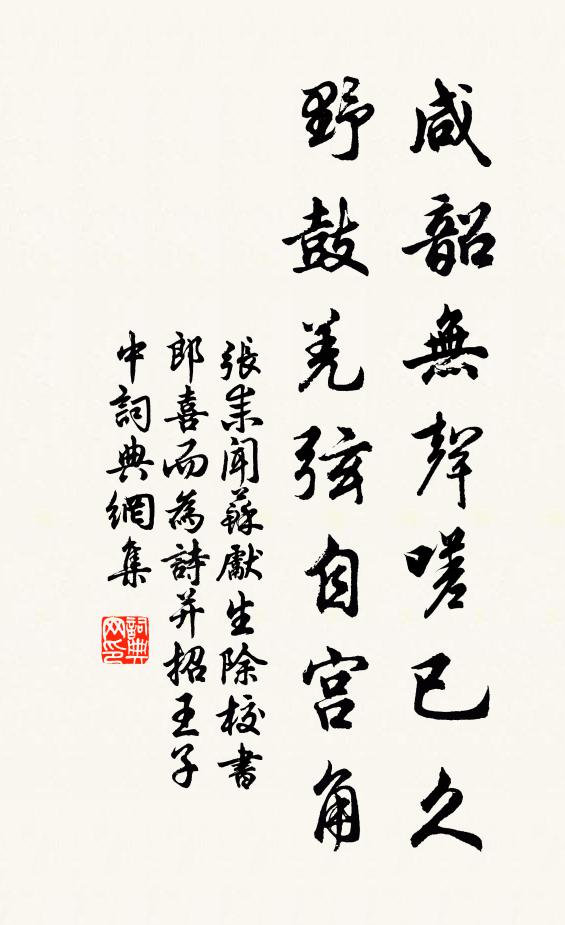 咸韶無聲嗟已久
野鼓羌弦自宫角
張耒聞蘇獻生除校書
郎喜而為詩并招王子
中詞典網集
詞典网印